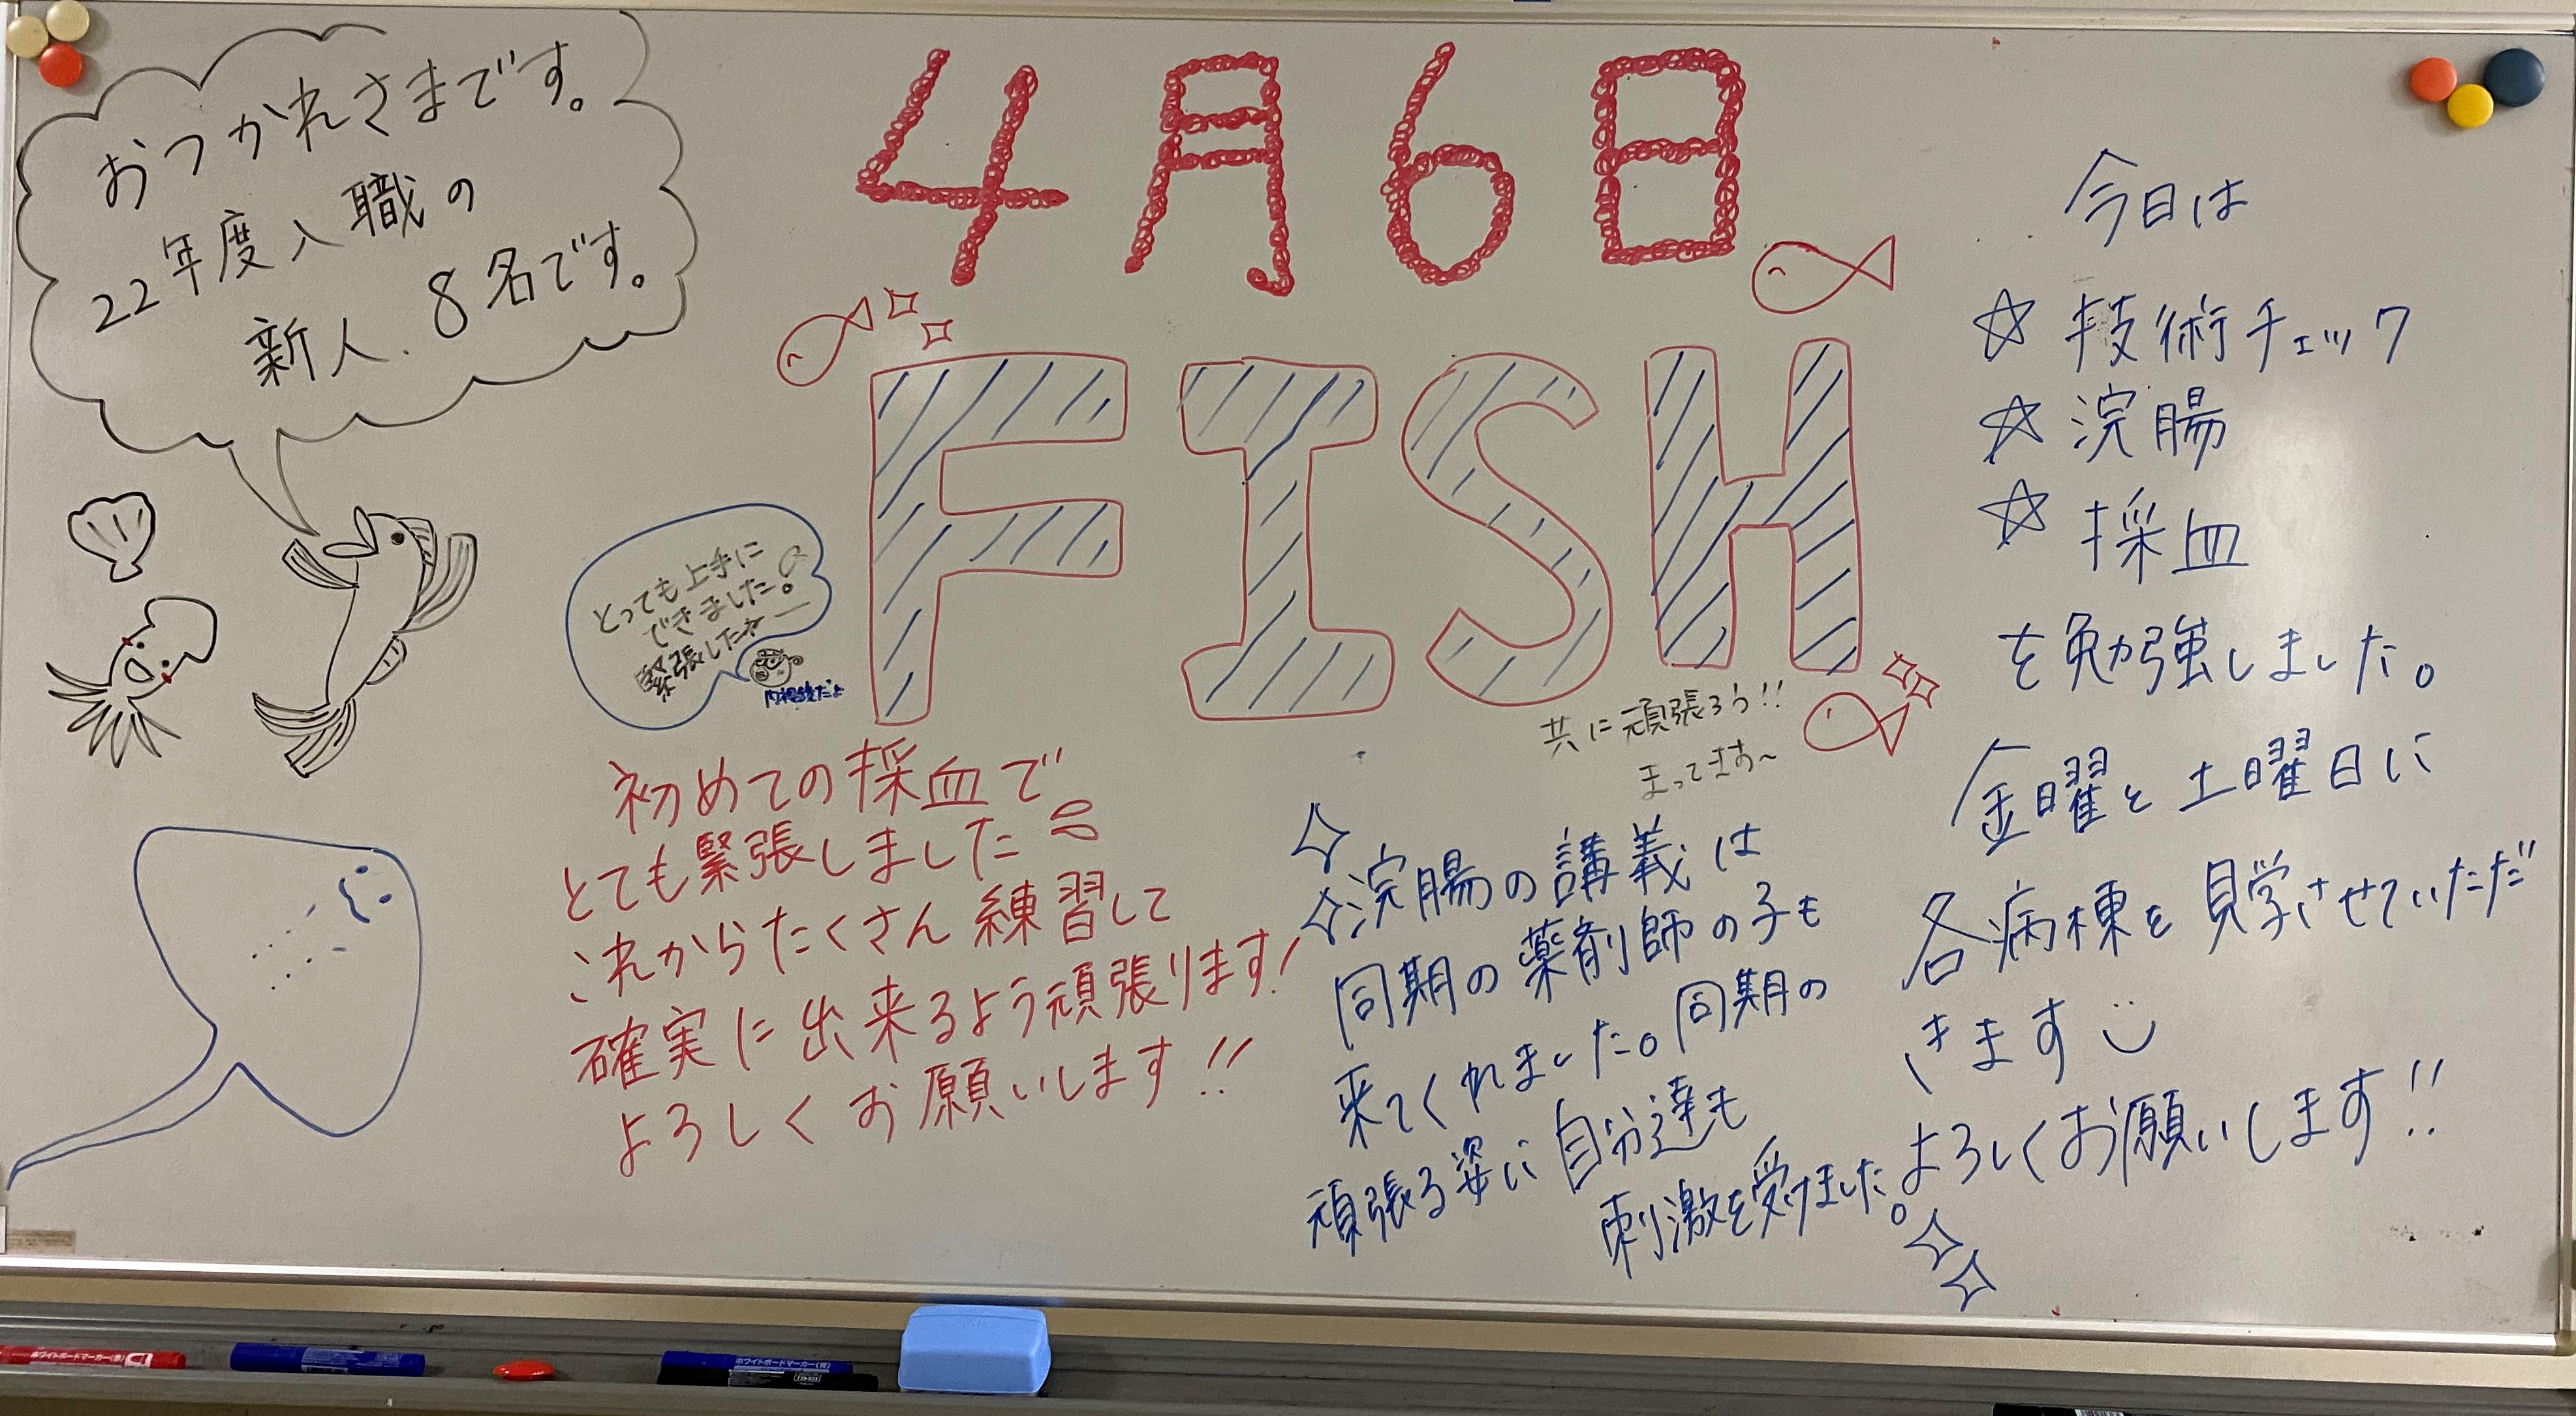 おつかれさまです。
22年度入職の
新人.8名です。
4月6日
FISH
とっても上手に
できました。
緊張したネー
共に頑張ろう!!
まってます〜
初めての採血で
とても緊張しました
これからたくさん練習して
確実に出来るよう頑張ります!
よろしくお願いします!!
浣腸の講義は
同期の薬剤師の子も
来てくれました。同期の
頑張る姿に自分達も
刺激を受けました。
今日は
☆技術チェック
☆浣腸
☆採血
を勉強しました。
金曜と土曜日に
各病棟を見学させていただ
きます
よろしくお願いします!!
ホワイトボードマーカー(赤)
ホワイトボードマーカー(青)